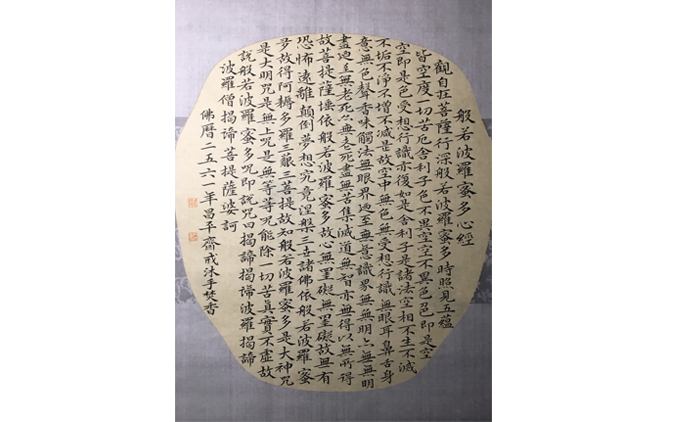 般若波羅蜜多心經
觀自在菩薩行深般若波羅蜜多時照見五蘊
皆空度一切苦厄舍利子色不異空空不異色色即是空
空即是色受想行識亦復如是舍利子是諸法空相不生不滅
不垢不淨不增不減是故空中無色無受想行識無眼耳鼻舌身
意無色聲香味觸法無眼界迺至無意識界無無明亦無無明
盡迺至無老死亦無老死盡無苦集滅道無智亦無得以無所得
故菩提薩埵依般若波羅蜜多故心無罣礙無罣礙故無有
恐怖遠離顛倒夢想究竟涅槃三世諸佛依般若波羅蜜
多故得阿耨多羅三藐三菩提故知般若波羅蜜多是大神咒
是大明咒是無上咒是無等等咒能除一切苦真實不虛故
說般若波羅蜜多咒即說咒曰揭諦揭諦波羅揭諦
波羅僧揭諦菩提薩婆訶
佛曆二五六一年昌平齋戒沐手焚香